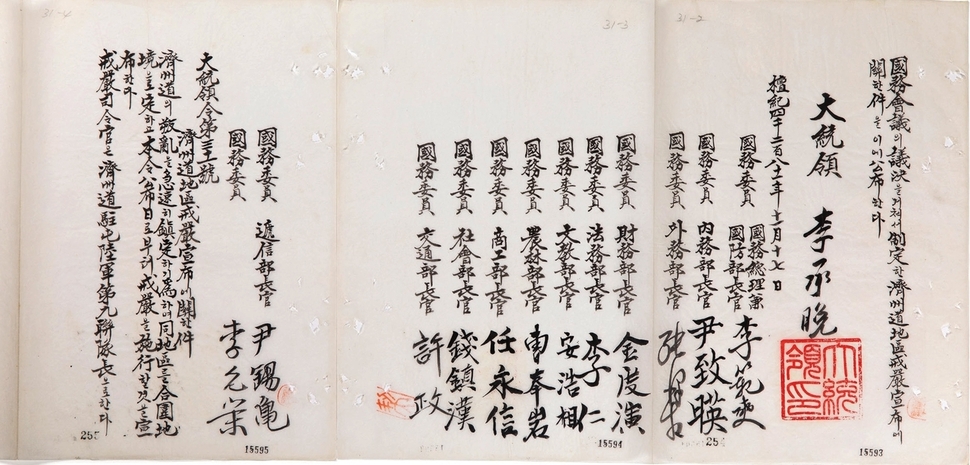 國務會議의 議決을거쳐서 制定한 濟州道地區戒嚴宣布에
關한件을 이에 公布한다
大統領 李承晩
大統領印
檀紀四千二百八十一年 十一月十七日
國務總理兼
國務委員 國防部長官 李範奭
國務委員 內務部長官 尹致暎
國務委員 外務部長官
31-2
18593
國務委員 財務部長官 金度演
國務委員 法務部長官 李仁
國務委員 文教部長官 安浩相
國務委員 農林部長官
國務委員 商工部長官 任永信
國務委員 社會部長官 錢鎮漢
國務委員 交通部長官 許政
31-3
18594
254
國務委員 遞信部長官 尹錫龜
國務委員 李允榮
大統領令第三十一號
濟州道地區戒嚴宣布에 關한件
濟州道의 叛亂을 急速히 鎭定하기 爲하여 同地區를 合圍地
境으로 定하고 本令 公布日로부터 戒嚴을 施行할것을 宣
布한다
戒嚴司令官은 濟州道駐屯陸軍第九聯隊長으로한다
31-4
255
18595